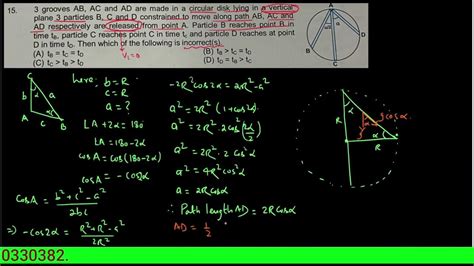 15. 3 grooves AB, AC and AD are made in a circular disk lying in a vertical
plane 3 particles B, C and D constrained to move along path AB, AC and
AD respectively are released from point A. Particle B reaches point B in
time tB, particle C reaches point C in time tc and particle D reaches at point
D in time tD. Then which of the following is incorrect(s).
(A) tB = tC = tD (B) tB > tC > tD
(C) tB > tC = tD (D) tD > tB > tC
A
B
C
D
C
α
b
a
A
c
α
B
here: b = R
c = R
a = ?
∠A + 2α = 180°
∠A = 180 - 2α
cosA = cos(180-2α)
cosA = - cos2α
cosA = b² + c² - a² / 2bc
⇒ -cos2α = R² + R² - a² / 2R²
-2R²cos2α = 2R² - a²
a² = 2R² (1 + cos2α)
a² = 2R² · 2cos²(2α/2)
a² = 2R² · 2cos²α
a² = 4R² cos²α
a = 2R cosα
∴ Path length AD = 2R cosα
AD = 1/2
α
R
R
α
g
g cosα
0330382.